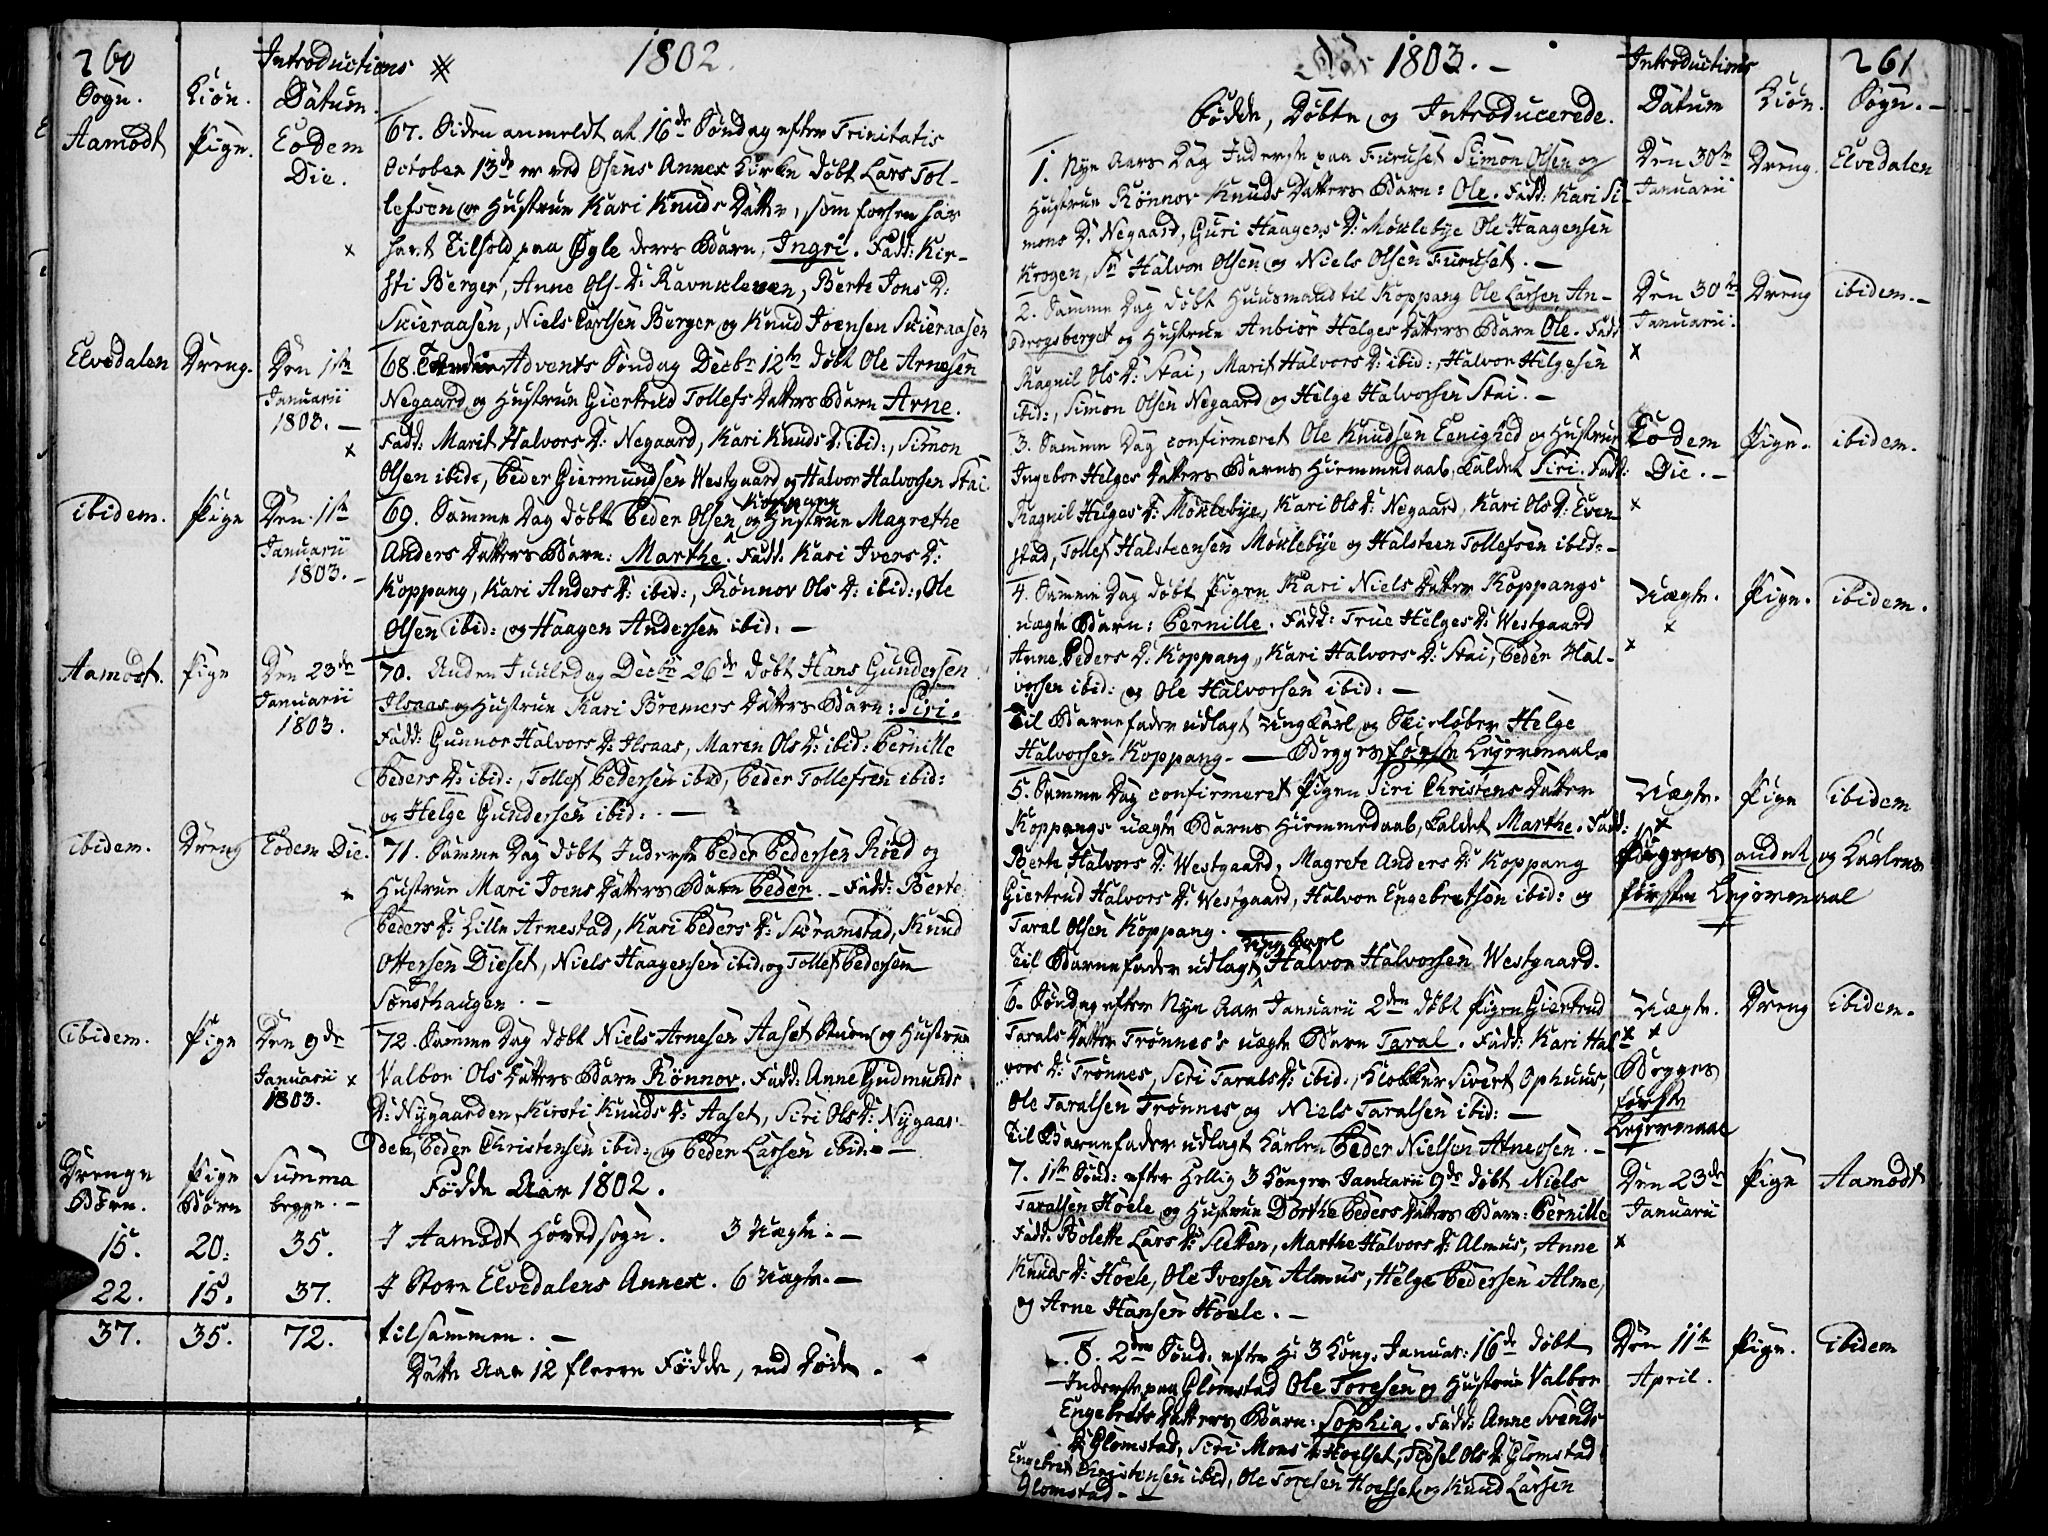 260
Introductions
1802.
Sogn. Kiön. Datum.
Aamodt Pige. Eodem Die.
67. Siden anmeldt at 16de Söndag efter Trinitatis
October 13de er ved Osens Annex Kirke döbt Lars Tol-
lefsen og Hustrue Kari Knuds Datter, som forhen har
havt Tilhold paa Ögle deres Barn, Ingri. Fadd: Kir-
sti Berger, Anne Ols D: Ravnkleven, Berte Jons D:
Skieraasen, Niels Carlsen Berger og Knud Joensen Skieraasen
Elvedalen Dreng. Den 1ste Januarii 1803. –
68. Anden Advents Söndag Decbr 12te döbt Ole Arnesen
Negaard og Hustrue Giertrud Tollefs Datters Barn Arne.
Fadd: Marit Halvors D: Negaard, Kari Knuds D: ibid:, Simon
Olsen ibid:, Peder Giermundsen Westgaard og Halvor Halvorsen Stai.
ibidem. Pige Den 1ste Januarii 1803. –
69. Samme Dag döbt Peder Olsen Koppang og Hustrue Magrethe
Anders Datters Barn: Marthe. Fadd: Kari Ivers D:
Koppang, Kari Anders D: ibid:, Rönnov Ols D: ibid:, Ole
Olsen ibid: og Haagen Andersen ibid: –
Aamodt. Pige Den 23de Januarii 1803.
70. Anden Juuledag Decbr 26de döbt Hans Gundersen
Ilsaas og Hustrue Kari Bremers Datters Barn: Siri.
Fadd: Gunnor Halvors D: Ilsaas, Maren Ols D: ibid: Pernille
Peders D: ibid:, Tollef Pedersen ibid, Peder Tollefsen ibid:
og Helge Gundersen ibid: –
ibidem. Dreng Eodem Die.
71. Samme Dag döbt Inderste Peder Pedersen Röed og
Hustrue Mari Joens Datters Barn Peder. – Fadd: Berte
Peders D: Lille Arnestad, Kari Peders D: Skramstad, Knud
Ottersen Dieset, Niels Haagensen ibid: og Tollef Pedersen
Sönsthaugen. –
ibidem. Pige Den 9de Januarii 1803.
72. Samme Dag döbt Niels Arnesen Aaset Stuen og Hustrue
Valbor Ols Datters Barn Rönnov. Fadd: Anne Gudmunds
D: Nygaarden, Kirsti Knuds D: Aaset, Siri Ols D: Nygaar-
den, Peder Christensen ibid: og Peder Larsen ibid: –
Drenge Börn. Pige Börn Summa begge. –
Födde Aar 1802.
15. 20: 35. I Aamodt Hovedsogn. 3 Uægte. –
22. 15. 37. I Store Elvedalens Annex. 6 Uægte. –
37. 35. 72. tilsammen. –
Dette Aar 12 fleere Födde, end Döde.
Aar 1803. –
Introductions
261
Födde, Döbte og Introducerede.
Datum Kiön. Sogn. –
1. Nye Aars Dag Inderste paa Furuset Simon Olsen og
Hustrue Rönnov Knuds Datters Barn: Ole. Fadd: Kari Si-
mons D: Negaard, Guri Haagens D: Möklebye Ole Haagensen
Krogen, Sr Halvor Olsen og Niels Olsen Furuset. –
Den 30te Januarii Dreng. Elvedalen
2. Samme Dag döbt Huusmand til Koppang Ole Larsen An-
drogsberget og Hustrue Anbiör Helges Datters Barn Ole. Fadd
Ragnil Ols D: Stai, Marit Halvors D: ibid:, Halvor Helgesen
ibid:, Simon Olsen Negaard og Helge Halvorsen Stai. –
Den 30te Januarii. Dreng ibidem. –
3. Samme Dag confirmeret Ole Knudsen Eenighed og Hustrue
Ingebor Helges Datters Barns Hiemmedaab, kaldet Siri. Fadd:
Ragnil Helges D: Möklebye, Kari Ols D: Negaard, Kari Ols D: Even-
stad, Tollef Halsteensen Möklebye og Halsteen Tollefsen ibid: –
Eodem Die. – Pige. ibidem.
4. Samme Dag döbt Pigen Kari Niels Datter Koppangs
uægte Barn: Pernille. Fadd: True Helges D: Westgaard
Anne Peders D: Koppang, Kari Halvors D: Stai, Peder Hal-
vorsen ibid: og Ole Halvorsen ibid: –
Til Barnefader udlagt Ung Karl og Skielöber Helge
Halvorsen Koppang. – Begges förste Leyermaal.
Uægte. Pige. ibidem.
5. Samme Dag confirmeret Pigen Siri Christens Datter
Koppangs uægte Barns Hiemmedaab, kaldet Marthe. Fadd:
Berte Halvors D: Westgaard, Magrete Anders D: Koppang
Giertrud Halvors D: Westgaard, Halvor Engebretsen ibid: og
Taral Olsen Koppang.
Til Barnefader udlagt Ung Karl Halvor Halvorsen Westgaard.
Uægte. Pige ibidem
Pigens andet og Karlens
förste Leyermaal
6. Söndag efter Nye Aar Januarii 2den döbt Pigen Giertrud
Tarals Datter Trönnes's uægte Barn Taral. Fadd: Kari Hal-
vors D: Trönnes, Siri Tarals D: ibid:, Klokker Sivert Ophuus,
Ole Taralsen Trönnes og Niels Taralsen ibid: –
Til Barnefader udlagt Karlen Peder Nielsen Atneosen. –
Uægte. Dreng ibidem.
Begges
förste
Leyermaal
7. 1ste Sönd: efter Hellig 3 Konger Januarii 9de döbt Niels
Taralsen Hoele og Hustrue Dorthe Peders Datters Barn: Pernille
Fadd: Bolette Lars D: Sletten, Marthe Halvors D: Almus, Anne
Knuds D: Hoele, Ole Iversen Almus, Helge Pedersen Alme,
og Arne Hansen Hoele. –
Den 23de Januarii Pige Aamodt
8. 2den Sönd: efter H: 3 Kong: Januar: 16de döbt
Inderste paa Glomstad Ole Toresen og Hustrue Valbor
Engebrets Datters Barn: Sophia. Fadd: Anne Svends
D: Glomstad, Siri Mons D: Hoelset, Sidsel Ols D: Glomstad
Engebret Christensen ibid, Ole Toresen Hoelset og Knud Larsen
Glomstad – –
Den 11te April. Pige. ibidem